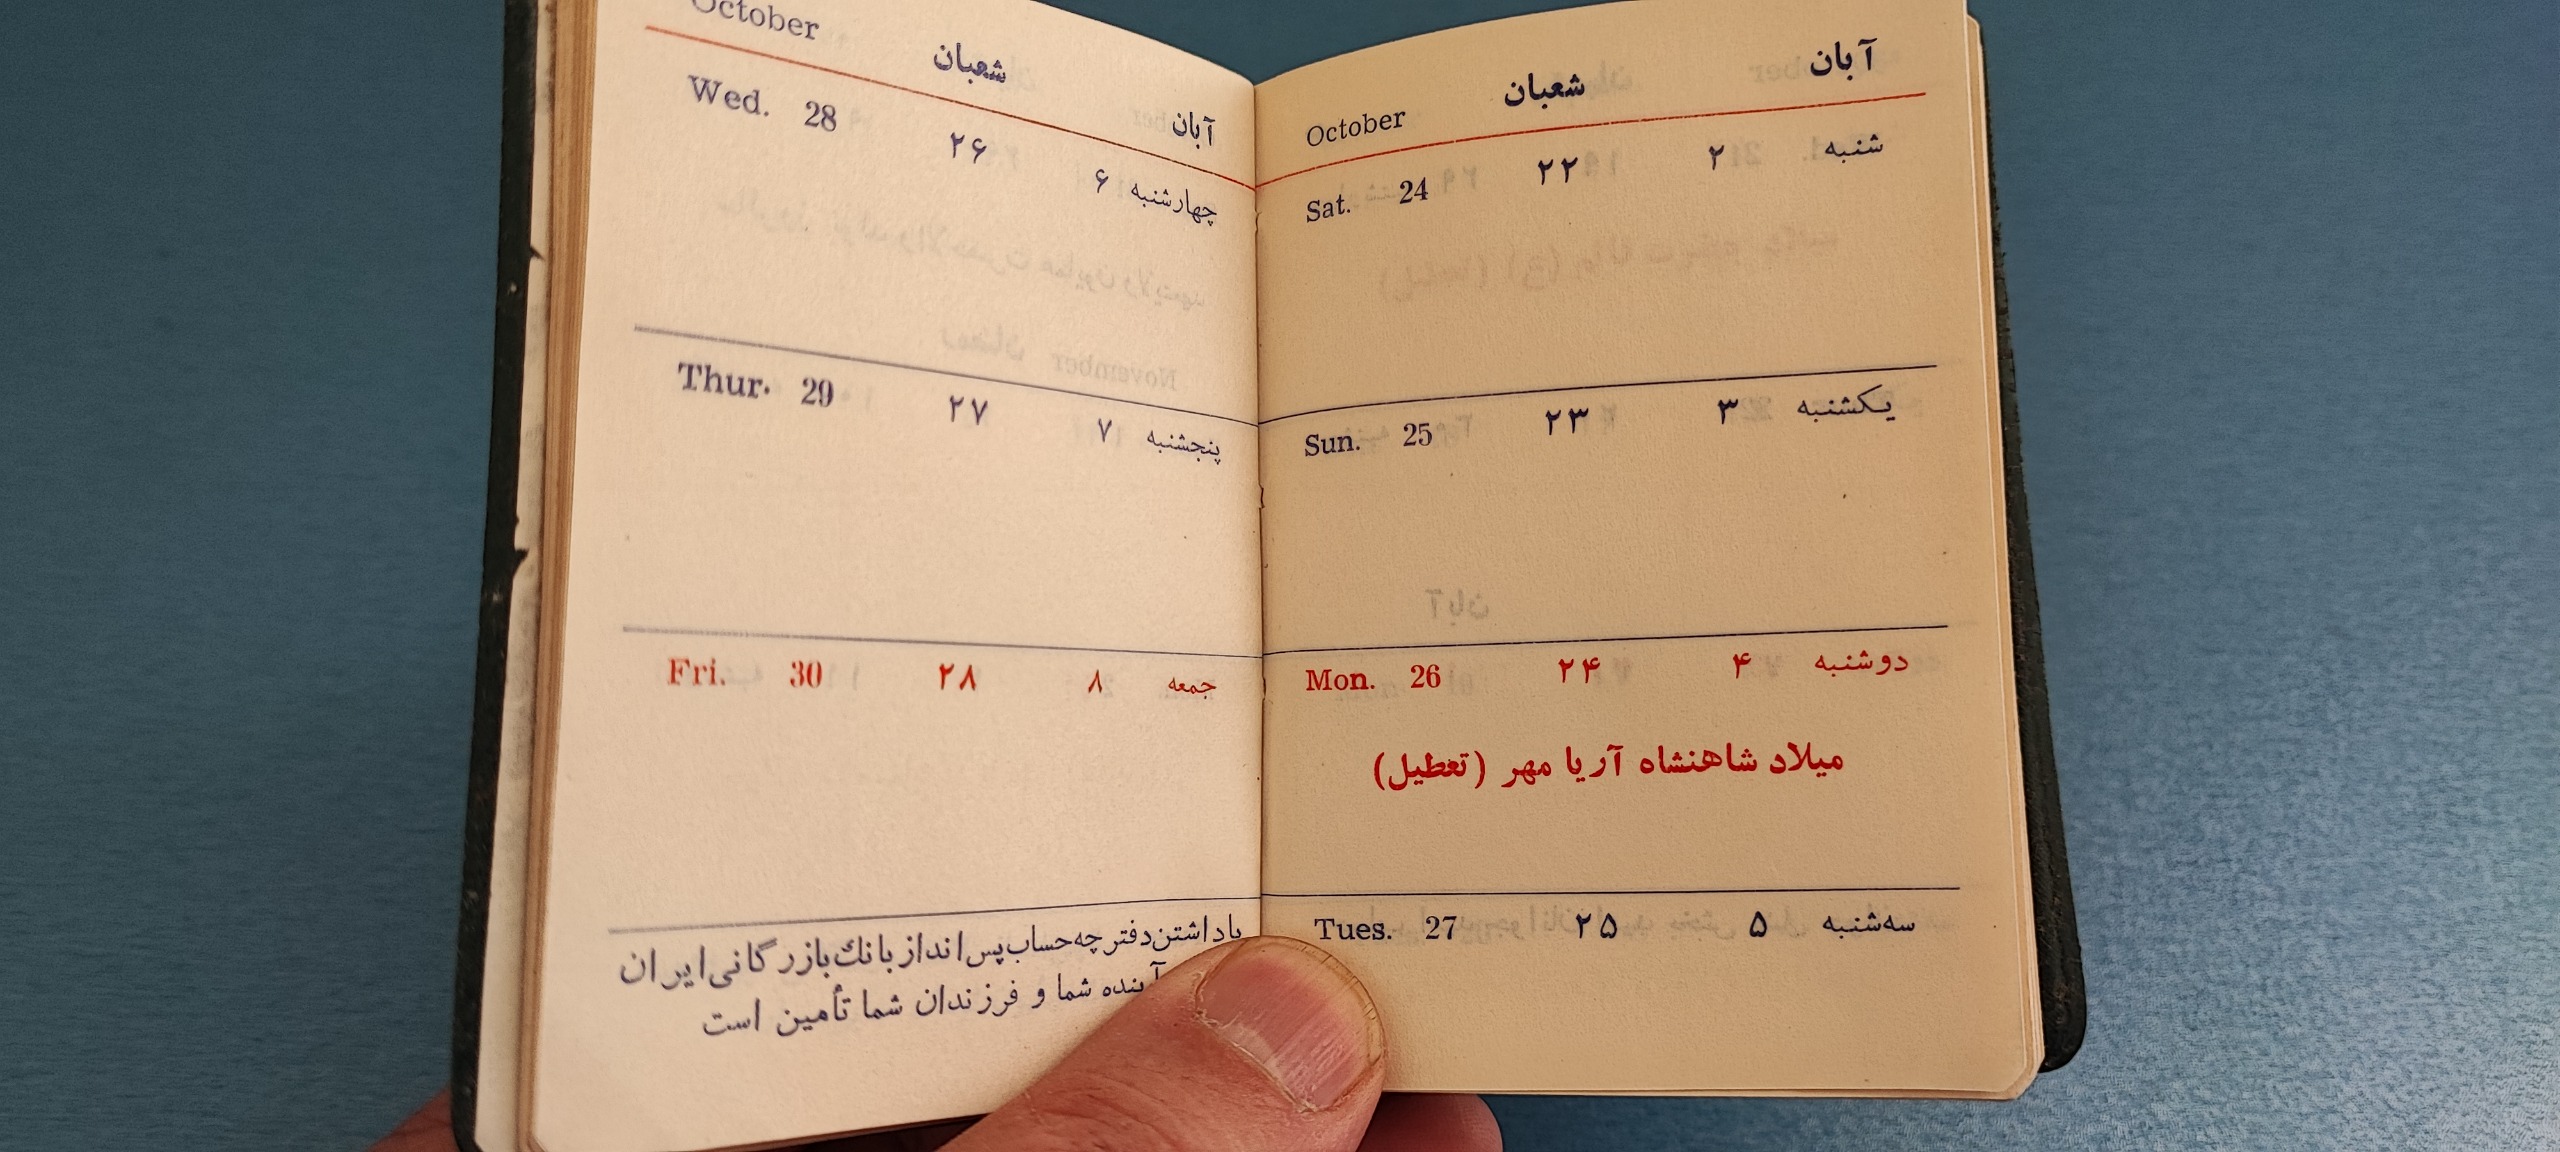 آبان شعبان October
شنبه ۲ ۲۲ Sat. 24
یکشنبه ۳ ۲۳ Sun. 25
دوشنبه ۴ ۲۴ Mon. 26
میلاد شاهنشاه آریا مهر (تعطیل)
سه‌شنبه ۵ ۲۵ Tues. 27
آبان شعبان October
چهارشنبه ۶ ۲۶ Wed. 28
پنجشنبه ۷ ۲۷ Thur. 29
جمعه ۸ ۲۸ Fri. 30
با داشتن دفترچه حساب پس انداز بانك بازرگانی ایران
آینده شما و فرزندان شما تأمین است